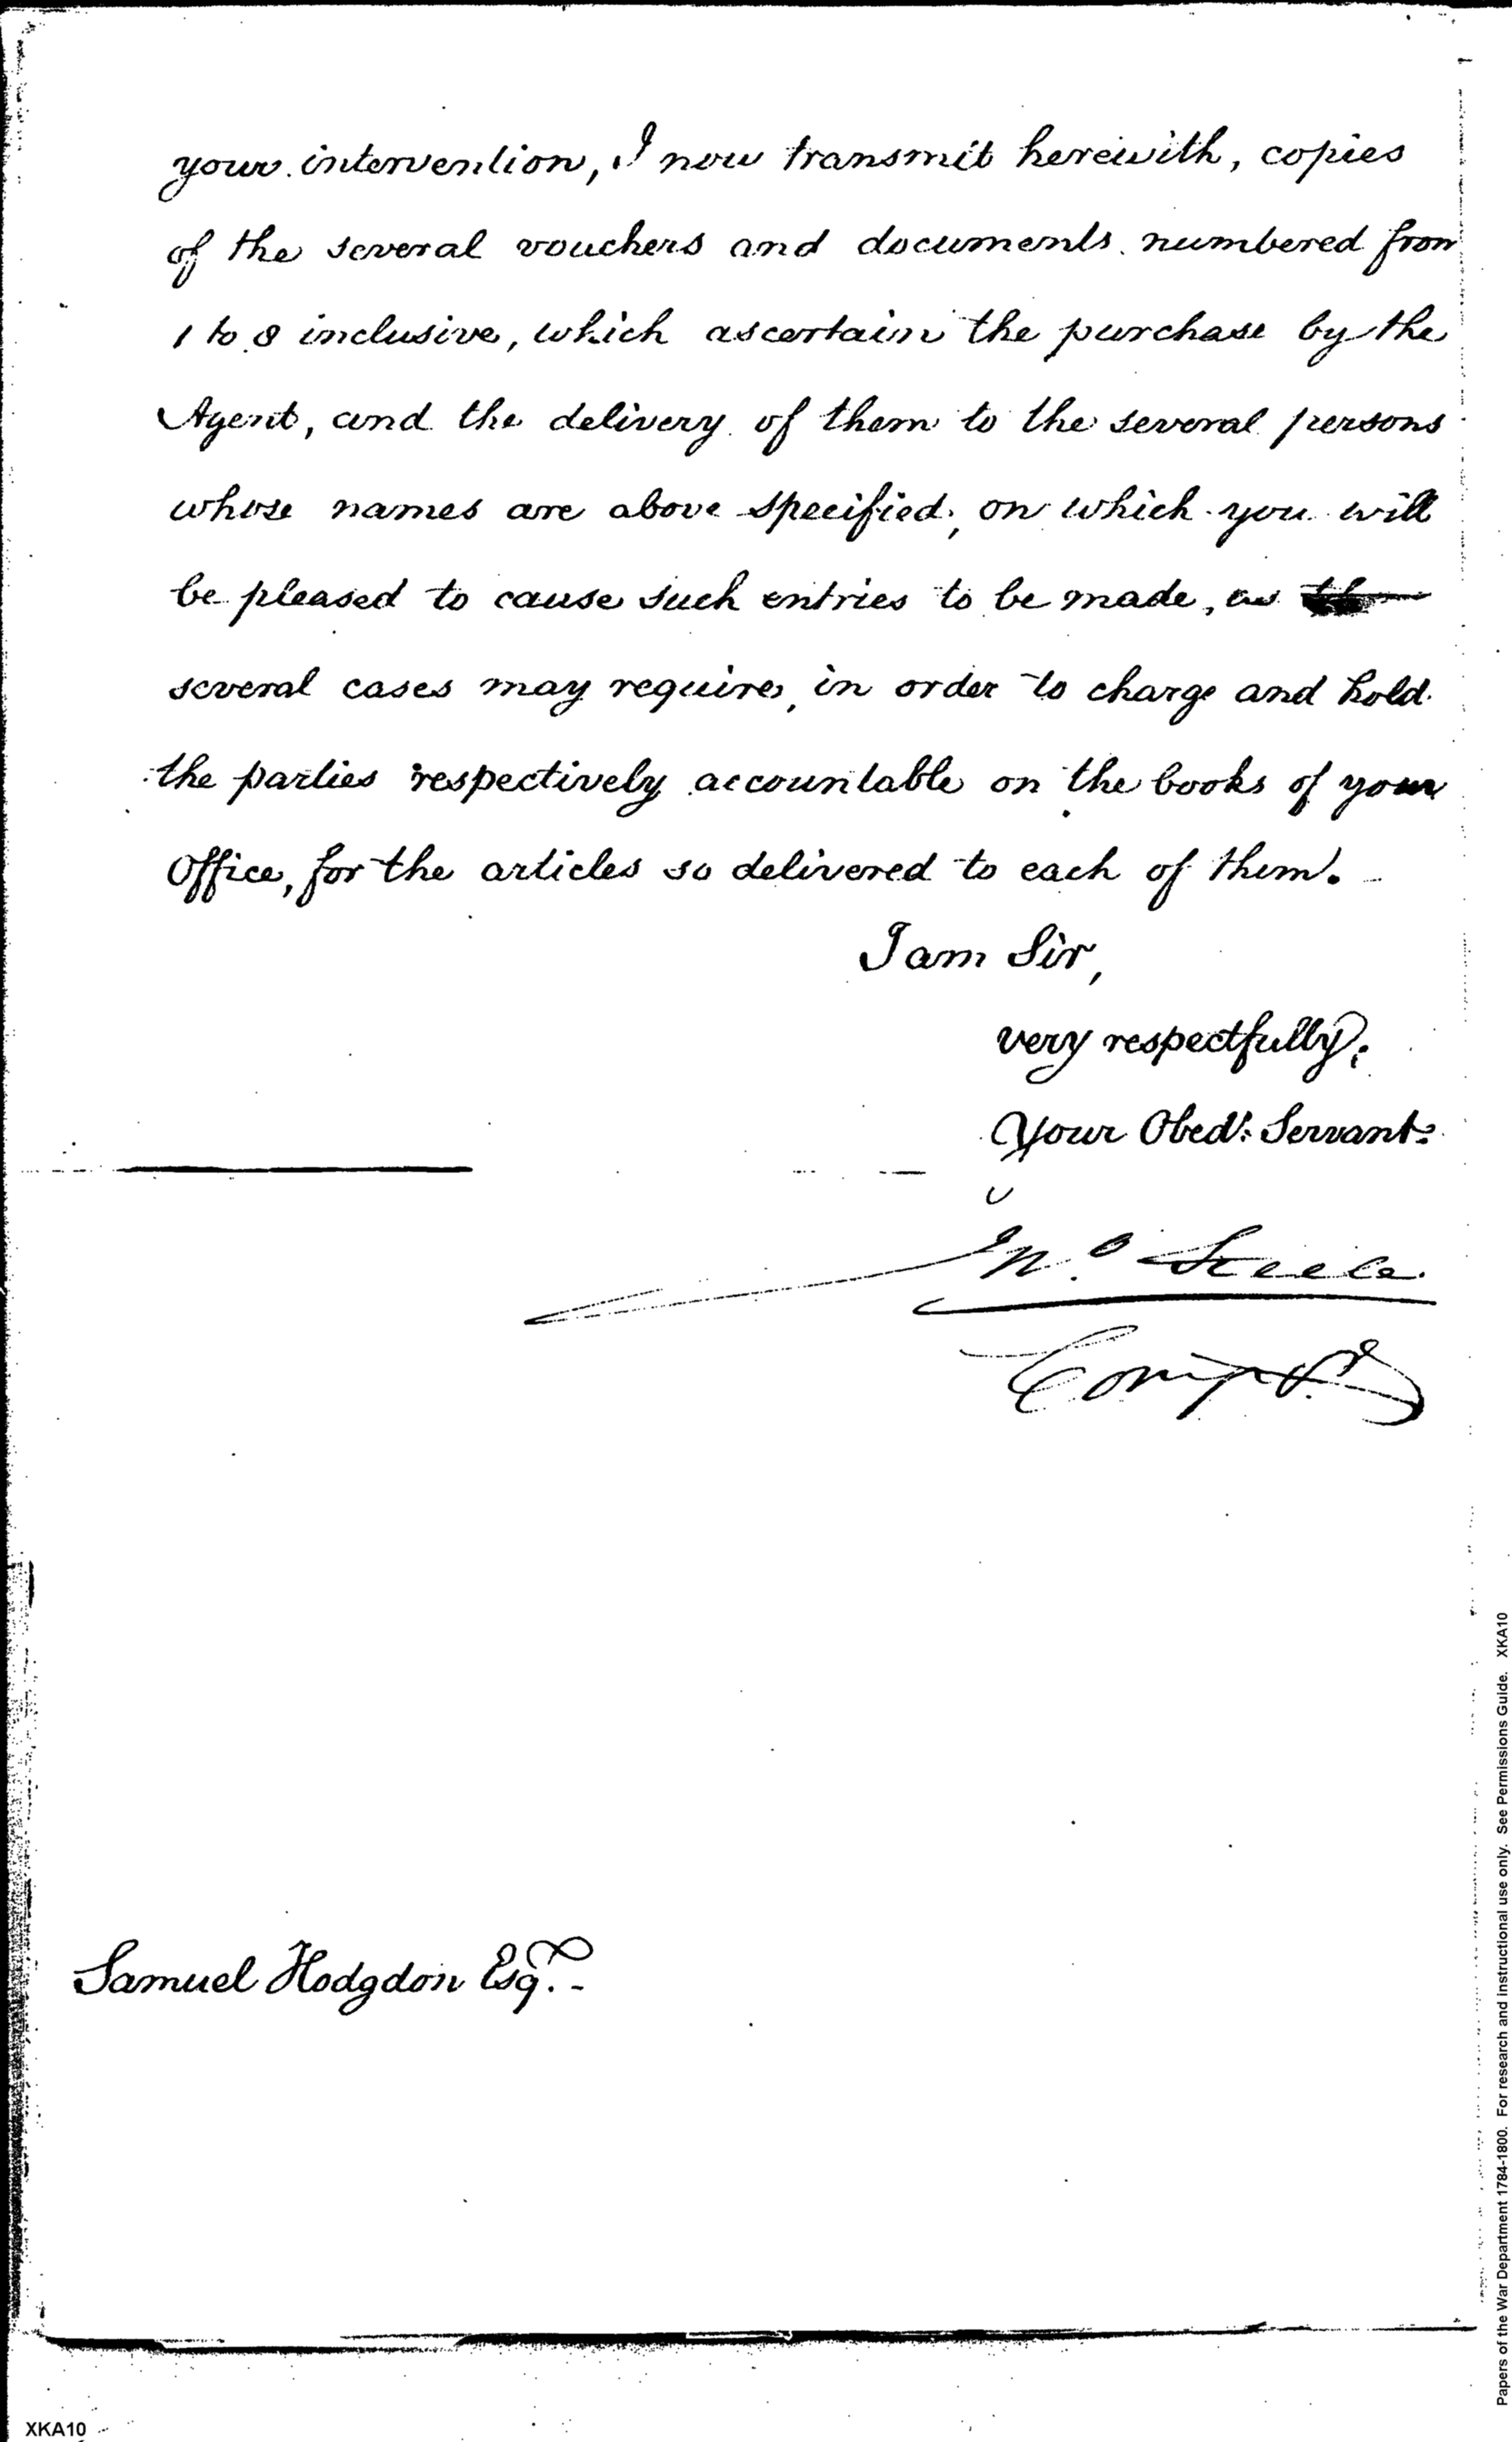 your intervention, I now transmit herewith, copies
of the several vouchers and documents numbered from
1 to 8 inclusive, which ascertain the purchase by the
Agent, and the delivery of them to the several persons
whose names are above specified, on which you will
be pleased to cause such entries to be made, as
several cases may require, in order to charge and hold
the parties respectively accountable on the books of your
Office, for the articles so delivered to each of them.
I am Sir,
very respectfully,
Your Obedt. Servant.
Jno. Steele
Comptr.
Samuel Hodgdon Esqr.
XKA10
Papers of the War Department 1784-1800. For research and instructional use only. See Permissions Guide. XKA10